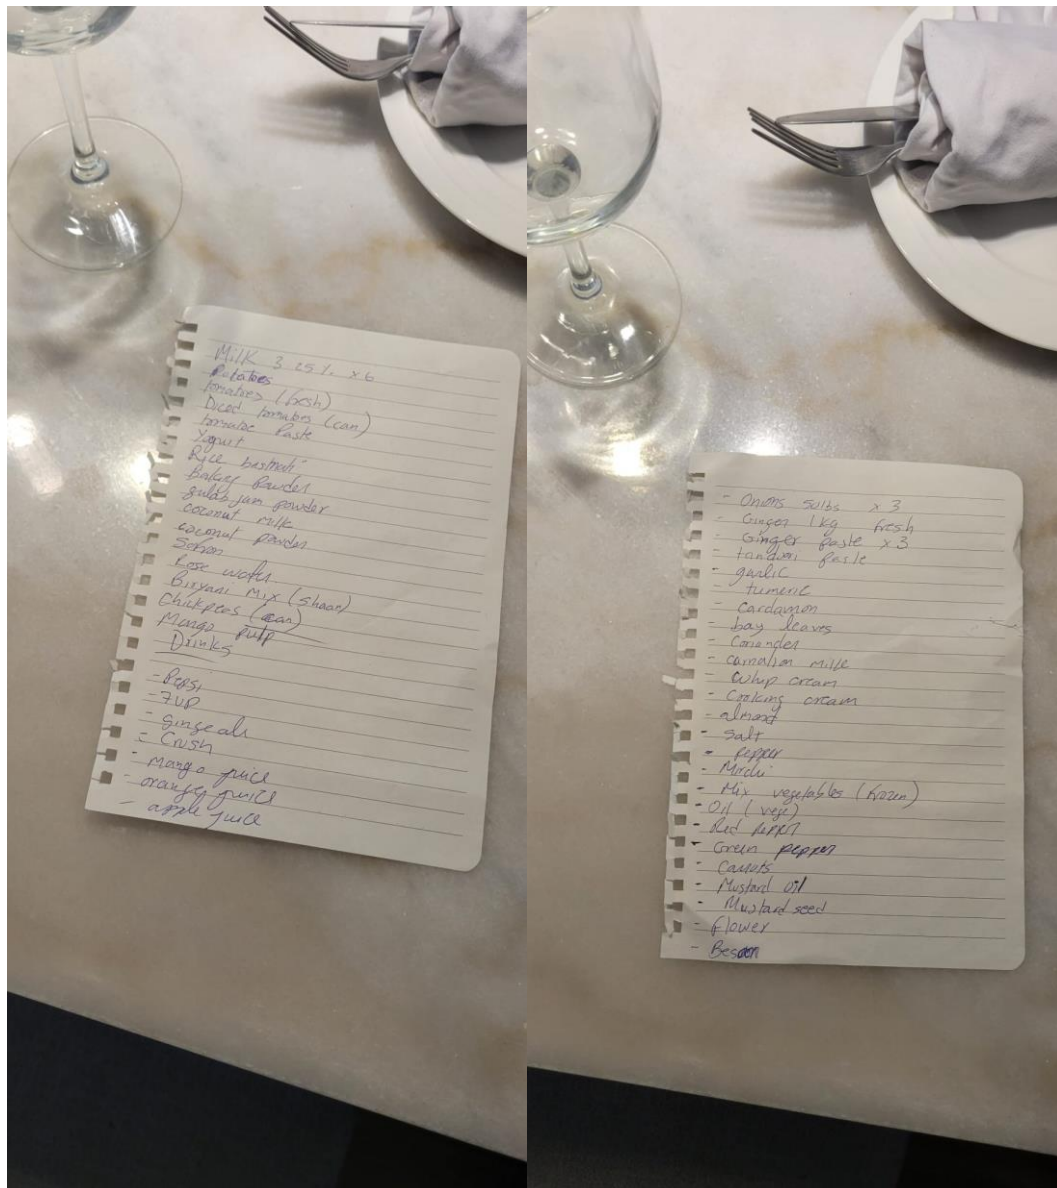 Milk 3.25% x6
Potatoes
tomatoes (fresh)
Diced tomatoes (can)
tomatoe Paste
Yogurt
Rice basmati
Baking Powder
gulab jam powder
coconut milk
coconut powder
Rose water
Biryani Mix (Shaan)
Chickpeas (can)
Mango pulp
Drinks
- Pepsi
- 7UP
- Ginge ale
- Crush
- Mango juice
- orange juice
- apple juice
- Onions x 3
- Ginger 1kg fresh
- Ginger paste x 3
- tandoori paste
- garlic
- tumeric
- Cardamon
- bay leaves
- Coriander
- carnation milk
- Whip cream
- Cooking cream
- almond
- Salt
- pepper
- Mirchi
- Mix vegetables (frozen)
- Oil (vege)
- Red pepper
- Green pepper
- Carrots
- Mustard Oil
- Mustard seed
- Flower
- Besan